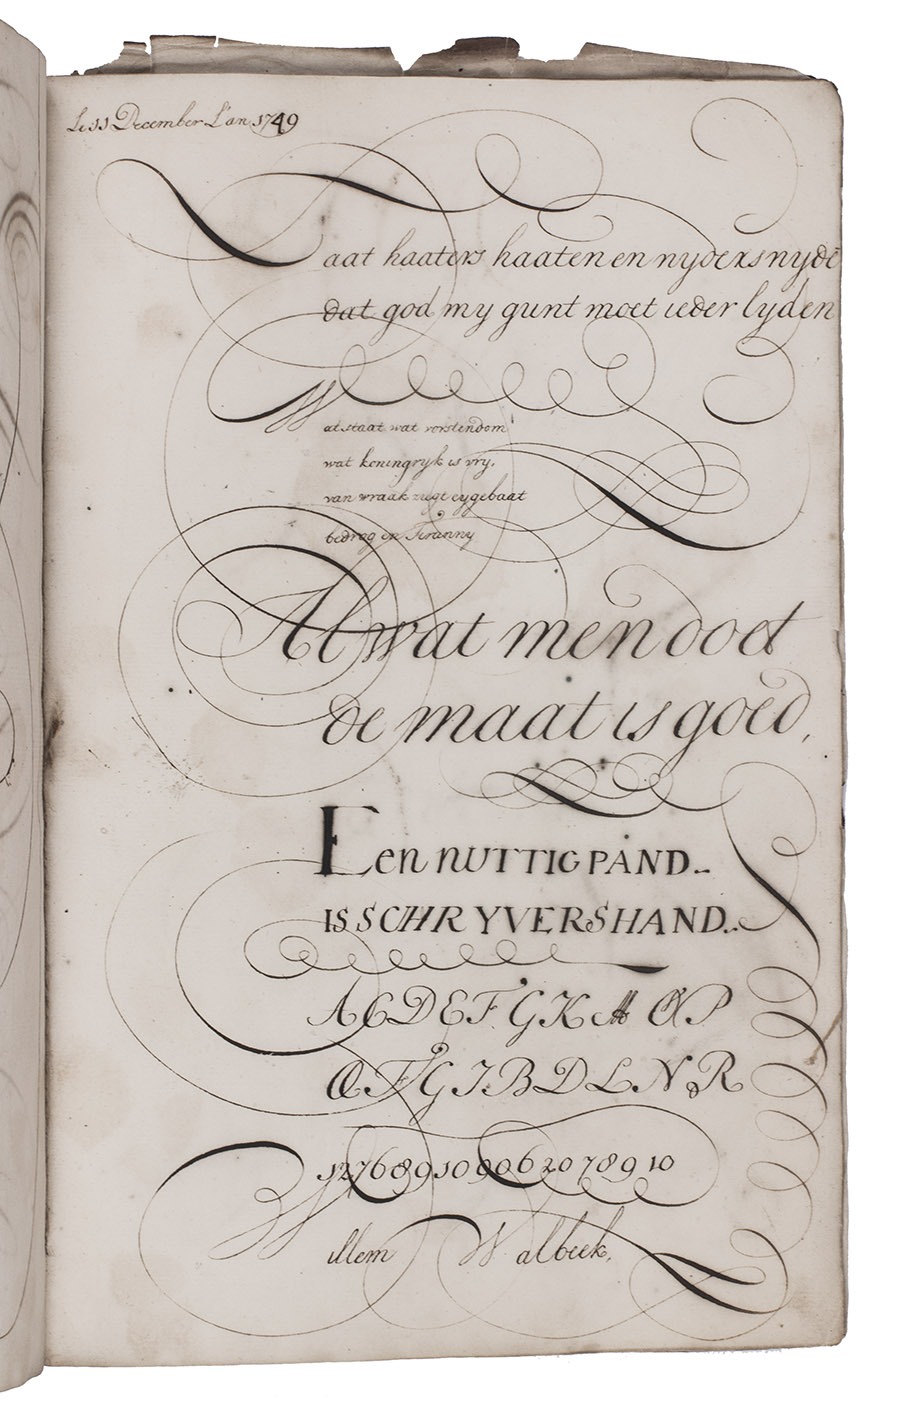 Le 11 December L'an 1749
Laat haaters haaten en nyders nyde
dat god my gunt moet ieder lyden
Wat staat wat vorstendom
wat koningryk is vry,
van wraak zugt eygebaat
bedrog en Tiranny
Al wat men doet
de maat is goed,
Een NUTTIG PAND..
IS SCHRYVERS HAND..
A C D E F G K M P
F G I B D L N R
1276891090620 78910
Willem Walbeek,